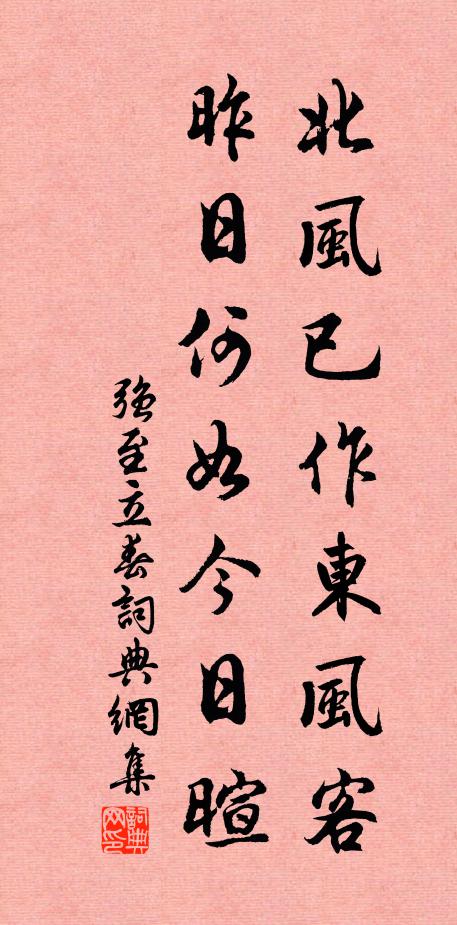 北風已作東風客
昨日何如今日暄
強至立春詞典網集
詞典网印